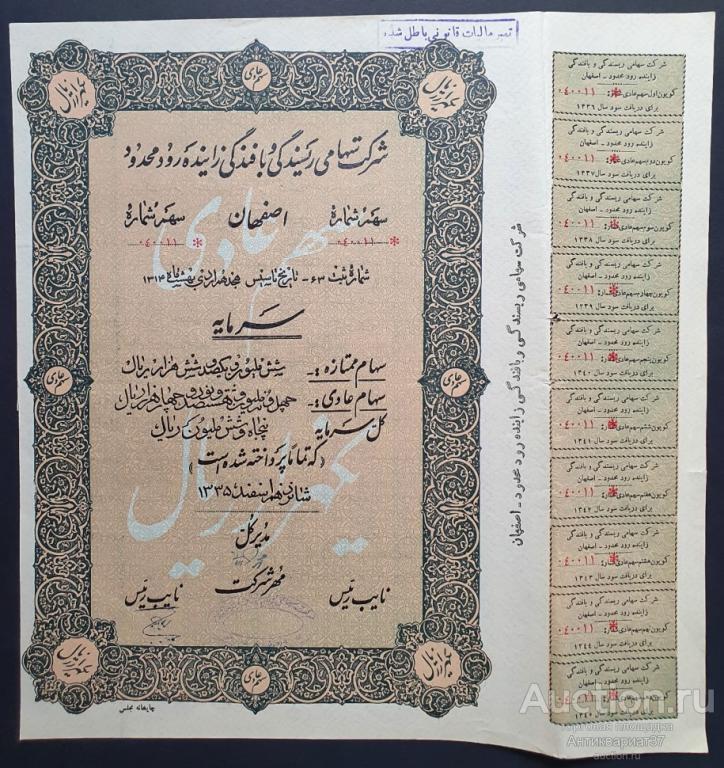 تمبر مالیات قانونی باطل شده
شرکت سهامی ریسندگی و بافندگی زاینده رود محدود
اصفهان
سهم شماره
سهم شماره
۰۴۰۰۱۱*
۰۴۰۰۱۱*
شماره ثبت ۴۳ - تاریخ تاسیس هجدهم اردیبهشت ماه ۱۳۱۴
سرمایه
سهام ممتازه :ـ شش ملیون و یکصد و شش هزار ریال
سهام عادی :ـ چهل و نه ملیون و هشتصد و نود و چهار هزار ریال
کل سرمایه پنجاه و شش ملیون ریال
( که تماماً پرداخته شده است )
شانزدهم اسفند ۱۳۳۵
مدیر کل
نایب رئیس
مهر شرکت
نایب رئیس
سهم عادی
یکهزار ریال
سهم عادی
یکهزار ریال
سهم عادی
سهم عادی
یکهزار ریال
سهم عادی
یکهزار ریال
سهم عادی
یکهزار ریال
چاپخانه مجلس
شرکت سهامی ریسندگی و بافندگی زاینده رود محدود - اصفهان
شرکت سهامی ریسندگی و بافندگی
زاینده رود محدود - اصفهان
کوپن اول سهم عادی شماره: ۰۴۰۰۱۱
برای دریافت سود سال ۱۳۳۶
شرکت سهامی ریسندگی و بافندگی
زاینده رود محدود - اصفهان
کوپن دوم سهم عادی شماره: ۰۴۰۰۱۱
برای دریافت سود سال ۱۳۳۷
شرکت سهامی ریسندگی و بافندگی
زاینده رود محدود - اصفهان
کوپن سوم سهم عادی شماره: ۰۴۰۰۱۱
برای دریافت سود سال ۱۳۳۸
شرکت سهامی ریسندگی و بافندگی
زاینده رود محدود - اصفهان
کوپن چهارم سهم عادی شماره: ۰۴۰۰۱۱
برای دریافت سود سال ۱۳۳۹
شرکت سهامی ریسندگی و بافندگی
زاینده رود محدود - اصفهان
کوپن پنجم سهم عادی شماره: ۰۴۰۰۱۱
برای دریافت سود سال ۱۳۴۰
شرکت سهامی ریسندگی و بافندگی
زاینده رود محدود - اصفهان
کوپن ششم سهم عادی شماره: ۰۴۰۰۱۱
برای دریافت سود سال ۱۳۴۱
شرکت سهامی ریسندگی و بافندگی
زاینده رود محدود - اصفهان
کوپن هفتم سهم عادی شماره: ۰۴۰۰۱۱
برای دریافت سود سال ۱۳۴۲
شرکت سهامی ریسندگی و بافندگی
زاینده رود محدود - اصفهان
کوپن هشتم سهم عادی شماره: ۰۴۰۰۱۱
برای دریافت سود سال ۱۳۴۳
شرکت سهامی ریسندگی و بافندگی
زاینده رود محدود - اصفهان
کوپن نهم سهم عادی شماره: ۰۴۰۰۱۱
برای دریافت سود سال ۱۳۴۴
شرکت سهامی ریسندگی و بافندگی
زاینده رود محدود - اصفهان
Auction.ru
торговая площадка
Антиквариат37
auction.ru